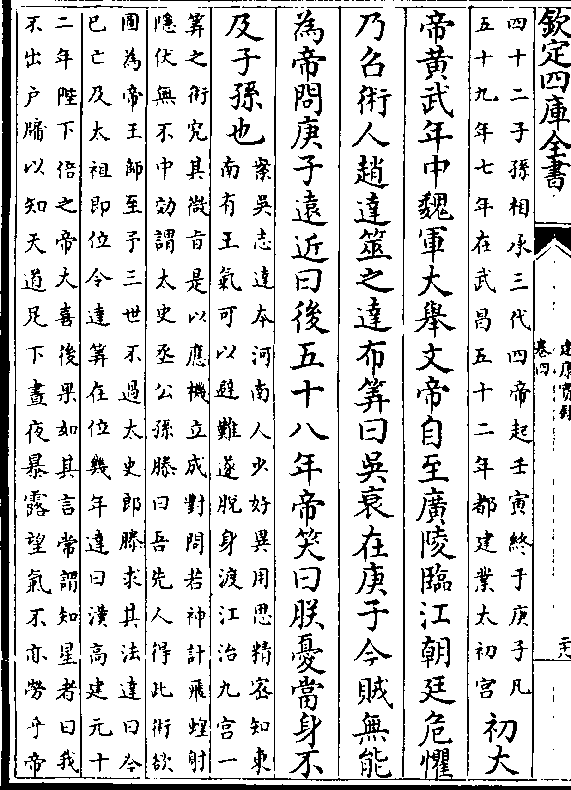 欽定四庫全書
建康實録
卷四
二十八
四十二子孫相承三代四帝起壬寅終于庚子凡
五十九年七年在武昌五十二年都建業太初宫
初大
帝黄武年中魏軍大舉文帝自至廣陵臨江朝廷危懼
乃召術人趙達筮之達布筭曰吴衰在庚子今賊無能
為帝問庚子遠近曰後五十八年帝笑曰朕憂當身不
及子孫也
案吴志達本河南人少好異用思精密知東
南有王氣可以避難遂脱身渡江治九宫一
筭之術究其微旨是以應機立成對問若神計飛蝗射
隱伏無不中効謂太史丞公孫滕曰吾先人得此術欲
圖為帝王師至予三世不過太史郎滕求其法達曰今
已亡及太祖即位令達筭在位幾年達曰漢高建元十
二年陛下倍之帝大喜後果如其言常謂知星者曰我
不出户牖以知天道足下晝夜暴露望氣不亦勞乎帝